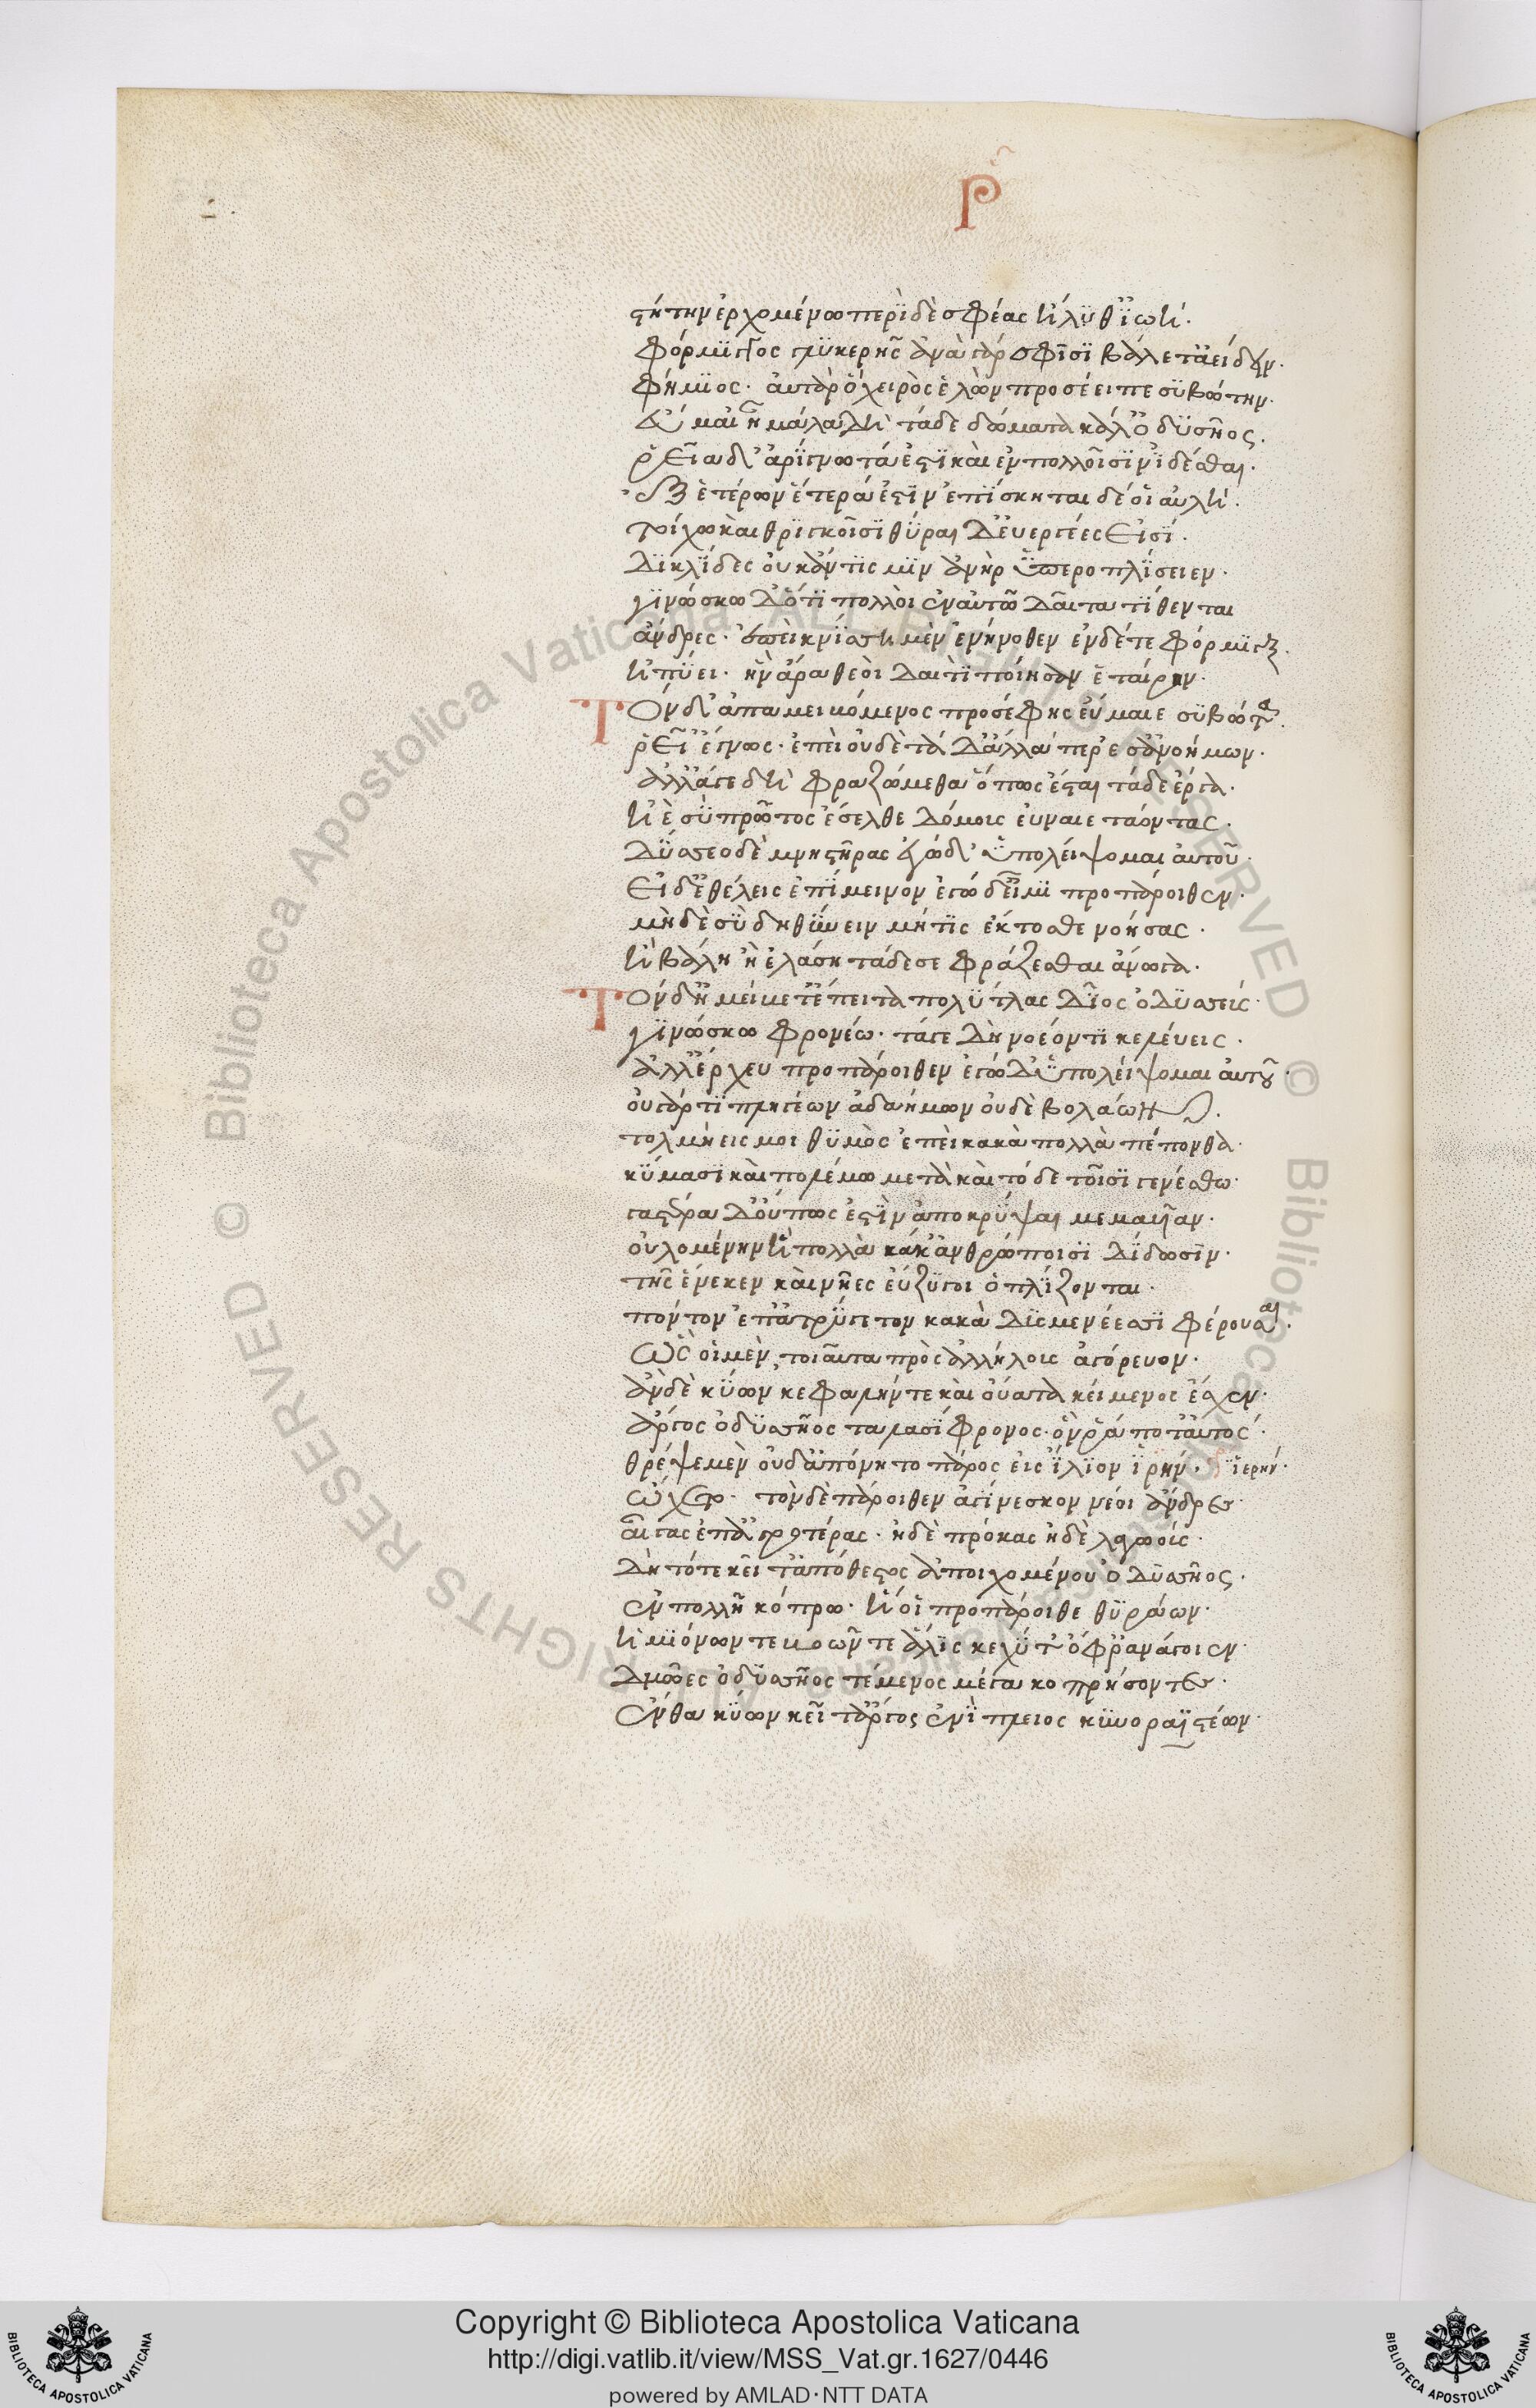 ρ
στήτην ἐρχομένω περῒ δὲ σφέας ἤλϋθ' ἰ̈ωὴ·
φόρμϊγγος γλϋκερῆς ἀνὰ γάρ σφῒσϊ βάλετ' ἀείδειν·
φήμϊος· αὐτὰρ ὁ χειρὸς ἑλὼν προσέειπε σϋβώτην·
εὔμαι' ἦ μάλα δὴ τάδε δώματα κάλ' ὀδϋσῆος·
ῥεῖα δ' ἀρίγνωτά ἐστϊ καὶ ἐν πολλοῖσϊν ἰ̈δέσθαι·
ἐξ ἑτέρων ἕτερά ἐστϊν ἐπϊήσκηται δέ οἱ αὐλὴ·
τοίχω καὶ θρϊγκοῖσϊ θύραι δ' εὐεργέες εἰσϊ·
δϊκλΐδες οὐκ ἄν τϊς μϊν ἀνὴρ ὑ̈περοπλΐσειεν·
γϊνώσκω δ' ὅτϊ πολλοὶ ἐν αὐτῶ δαῖτα τΐθενται
ἄνδρες· ἐπεὶ κνΐσση μὲν ἐνήνοθεν ἐν δέ τε φόρμϊγξ·
ἠπΰει· ἣν ἄρα θεοὶ δαιτὶ ποίησαν ἑταίρην·
Τὸν δ' ἀπαμειβόμενος προσέφης εὔμαιε σϋβῶτα·
ῥεῖ' ἔγνως· ἐπεὶ οὐδὲ τά δ' ἄλλά περ' ἐσσ' ἀνοήμων·
ἀλλ' ἄγε δὴ φραζώμεθα ὅπως ἔσται τάδε ἔργα·
ἠὲ σὺ πρῶτος ἔσελθε δόμοις εὐναιετάοντας·
δΰσεο δὲ μνηστῆρας ἐγὼ δ' ὑ̈πολείψομαι αὐτοῦ·
εἰ δ' ἐθέλεις ἐπΐμεινον ἐγὼ δ' εἶμϊ προπάροιθεν·
μὴ δὲ σὺ δηθύ̈νειν μήτϊς ἔκτοσθε νοήσας·
ἢ βάλη ἢ ἐλάση τάδε σε φράζεσθαι ἄνωγα·
Τὸν δ' ἠμείβετ' ἔπειτα πολύτλας δῖος ὀδυσσεύς·
γϊνώσκω φρονέω· τάγε δὴ νοέοντϊ κελεύεις·
ἀλλ' ἔρχευ προπάροιθεν ἐγὼ δ' ὑ̈πολείψομαι αὐτοῦ·
οὐ γάρ τϊ πληγέων ἀδαήμων οὐδὲ βολάων·
τολμήεις μοι θϋμὸς ἐπεὶ κακὰ πολλὰ πέπονθα·
κύμασϊ καὶ πολέμω μετὰ καὶ τόδε τοῖσϊ γενέσθω·
γαστέρα δ' οὔπως ἐστὶν ἀποκρύψαι μεμαυῖαν·
οὐλομένην ἣ πολλὰ κάκ' ἀνθρώποισϊ δΐδωσϊν·
τῆς ἕνεκεν καὶ νῆες εὔζϋγοι ὁπλΐζονται·
πόντον ἐπ' ἀτρύγετον κακὰ δϋσμενέεσσϊ φέρουσαι·
Ὣς οἱ μὲν τοιαῦτα πρὸς ἀλλήλους ἀγόρευον·
ἂν δὲ κύων κεφαλήν τε καὶ οὔατα κείμενος ἔσχεν·
ἄργος ὀδϋσσῆος ταλασΐφρονος· ὅν ῥά ποτ' αὐτὸς·
θρέψε μὲν οὐδ' ἀπόνητο πάρος εἰς ἴλϊον ἱ̈ρήν· ἱ̈ερήν·
ὤχετο· τὸν δὲ πάροιθεν ἀγΐνεσκον νέοι ἄνδρες·
αἶγας ἐπ' ἀγροτέρας· ἠδὲ πρόκας ἠδὲ λαγωούς·
δὴ τότε κεῖτ' ἀπόθεστος ἀποιχομένου ὀδϋσσῆος·
ἐν πολλῆ κόπρω· ἥ οἱ προπάροιθε θϋράων·
ἡμϊόνων τε βοῶν τε ἅλϊς κέχϋτ' ὄφρ' ἂν ἄγοιεν·
δμῶες ὀδϋσσῆος τέμενος μέγα κοπρήσοντες·
ἔνθα κύων κεῖτ' ἄργος ἐνΐπλειος κϋνοραϊστέων·
Copyright © Biblioteca Apostolica Vaticana
http://digi.vatlib.it/view/MSS_Vat.gr.1627/0446
powered by AMLAD·NTT DATA